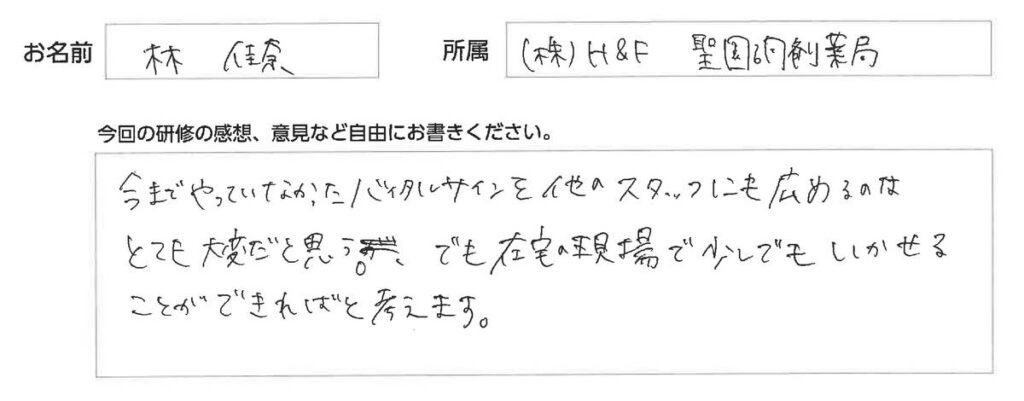 お名前 林 佳奈 所属 (株)H&F 聖園調剤薬局
今回の研修の感想、意見など自由にお書きください。
今までやっていなかったバイタルサインを他のスタッフにも広めるのは
とても大変だと思う。でも在宅の現場で少しでもいかせる
ことができればと考えます。